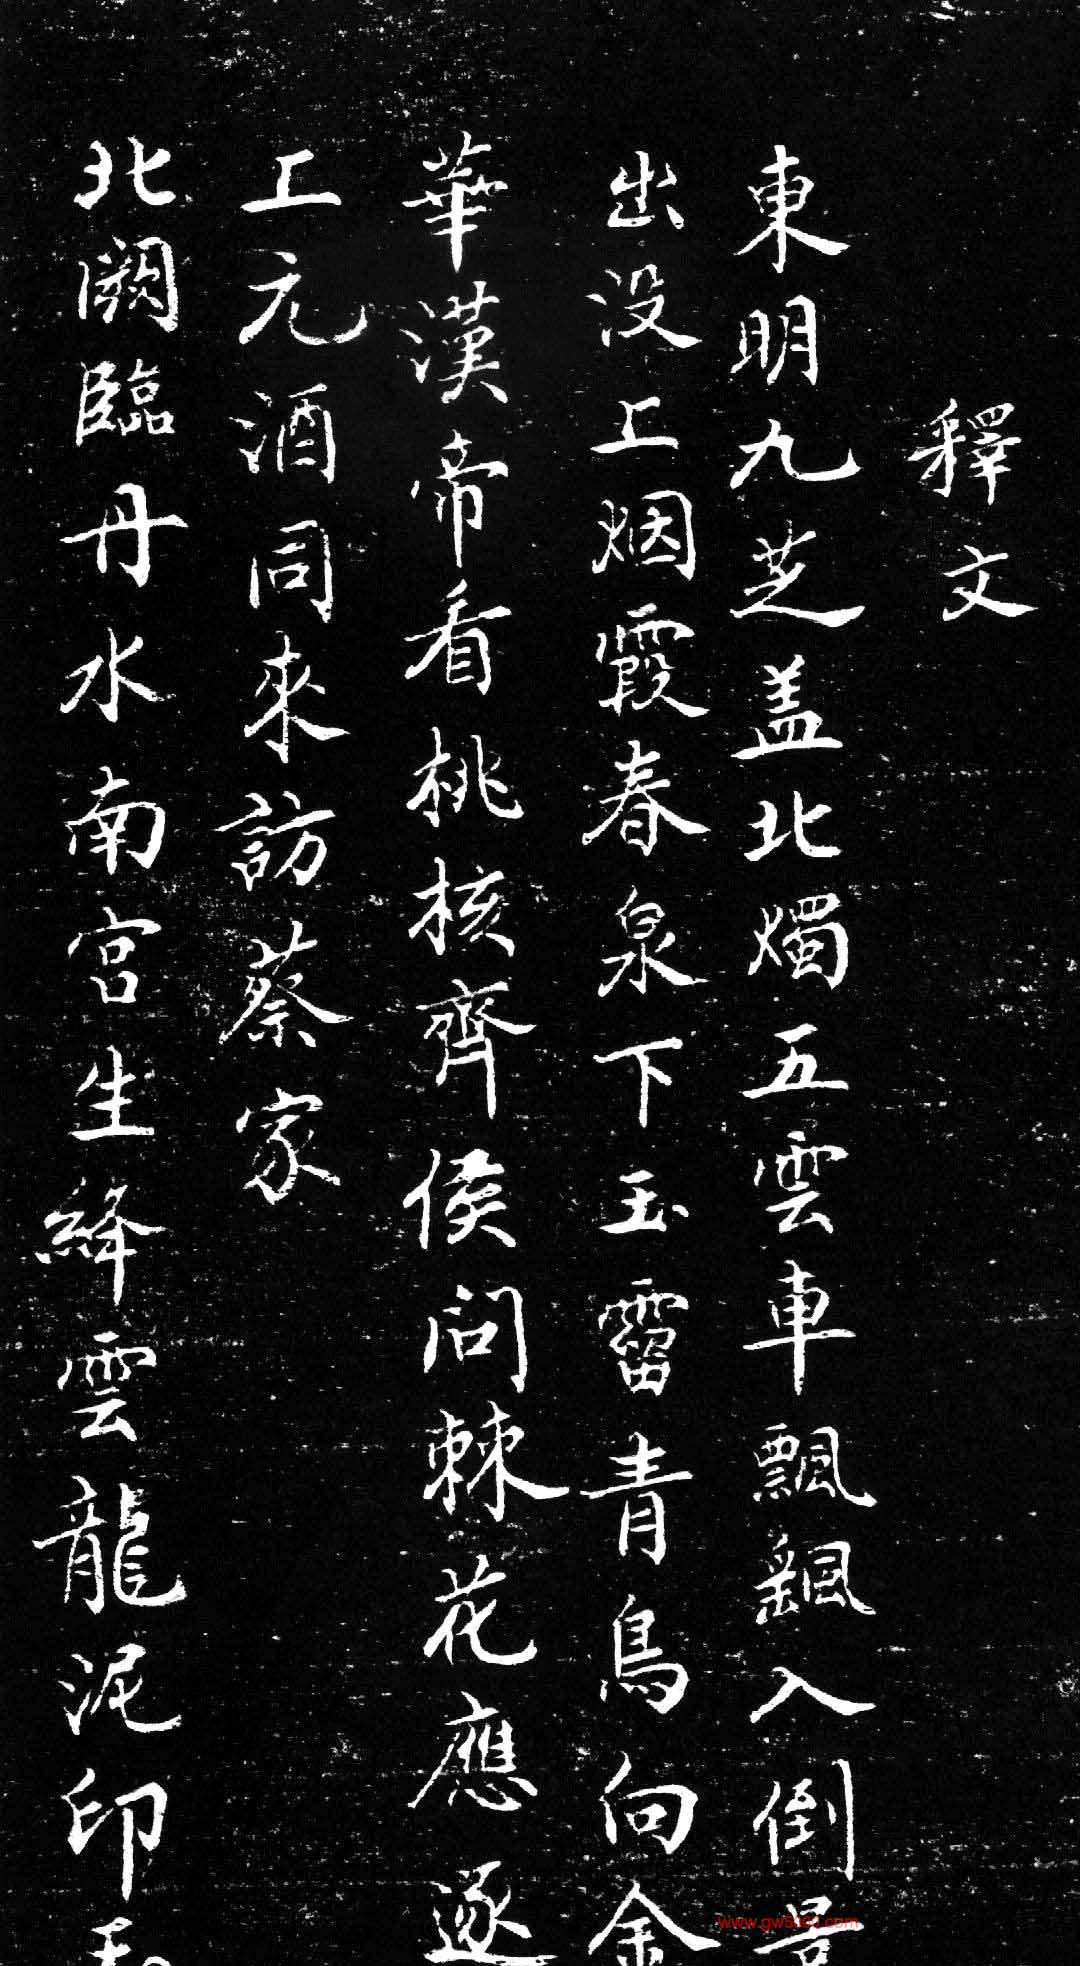 釋文
東明九芝盖北燭五雲車飄颻入倒景
出没上烟霞春泉下玉霤青鳥向金
華漢帝看桃核齊侯問棘花應逐
上元酒同來訪蔡家
北闕臨丹水南宮生絳雲龍泥印
www.gw5000.com